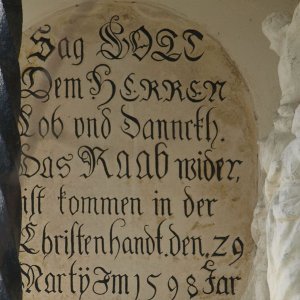 Sag GOTT
Dem HERREN
Lob vnd Danncth.
Das RAAB wider,
ist kommen in der
Christenhandt. den. 29
Martÿ Im 1598 Jar